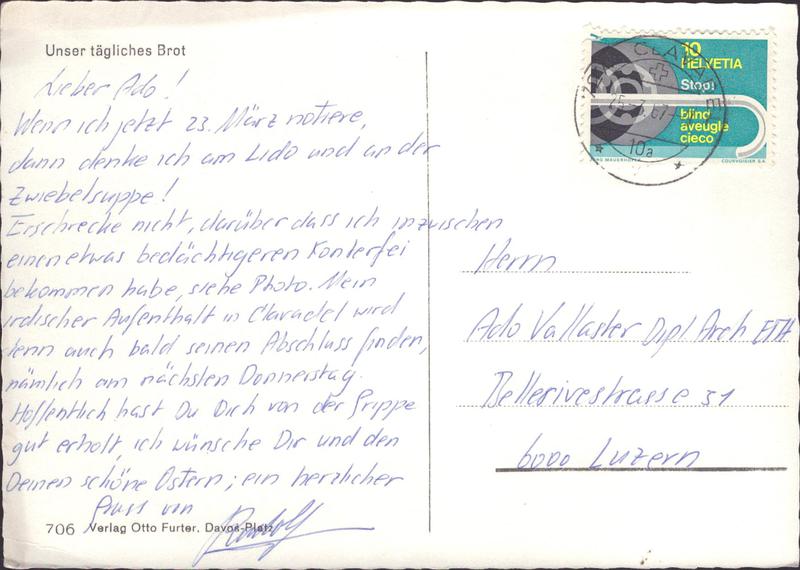 Unser tägliches Brot
Lieber Ado!
Wenn ich jetzt 23. März notiere,
dann denke ich am Lido und an der
Zwiebelsuppe!
Erschrecke nicht, darüber dass ich inzwischen
einen etwas bedächtigeren Konterfei
bekommen habe, siehe Photo. Mein
irdischer Aufenthalt in Clavadel wird
denn auch bald seinen Abschluss finden,
nämlich am nächsten Donnerstag.
Hoffentlich hast Du Dich von der Grippe
gut erholt, ich wünsche Dir und den
Deinen schöne Ostern; ein herzlicher
Gruss von
Rudolf
706 Verlag Otto Furter, Davos-Platz
10
HELVETIA
Stop!
blind
aveugle
cieco
COURVOISIER S.A.
10a
Herrn
Ado Vallaster Dipl Arch ETH
Bellerivestrasse 31
6000 Luzern